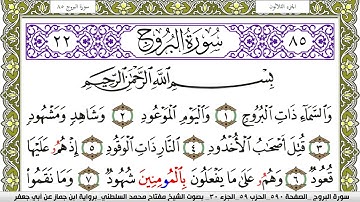 الجزء الثلاثون
سورة البروج ٨٥
٨٥ سُورَةُ البُرُوجِ ٢٢
بِسْمِ اللَّهِ الرَّحْمَٰنِ الرَّحِيمِ
وَالسَّمَآءِ ذَاتِ الْبُرُوجِ ١ وَالْيَوْمِ الْمَوْعُودِ ٢ وَشَاهِدٍ وَمَشْهُودٍ
٣ قُتِلَ أَصْحَٰبُ الْأُخْدُودِ ٤ النَّارِ ذَاتِ الْوَقُودِ ٥ إِذْ هُمُۥ عَلَيْهَا
قُعُودٌ ٦ وَهُمُۥ عَلَىٰ مَا يَفْعَلُونَ بِالْمُومِنِينَ شُهُودٌ ٧ وَمَا نَقَمُوا
سورة البروج - الصفحة ٥٩٠ - الحزب ٥٩ - الجزء ٣٠ - بصوت الشيخ مفتاح محمد السلطني - برواية ابن جماز عن أبي جعفر